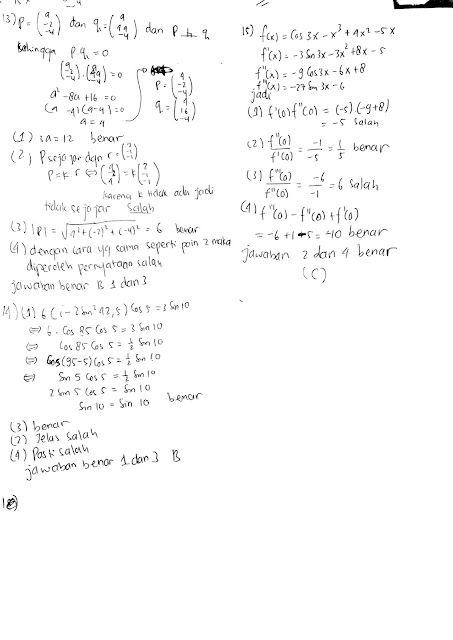 13) P = (a -2 -4) dan q = (a 4a -4) dan P ⊥ q
Sehingga P.q = 0
(a -2 -4) . (a 4a -4) = 0
a² - 8a + 16 = 0
(a - 4)(a - 4) = 0
a = 4
P = (4 -2 -4)
q = (4 16 -4)
(1) 3a = 12 benar
(2) P sejajar dgn r =
P = k.r ⇔
karena k tidak ada jadi
tidak sejajar Salah
(3) |P| = √4² + (-2)² + (-4)² = 6 benar
(4) dengan cara yg sama seperti poin 2 maka
diperoleh pernyataan salah
jawaban benar B 1 dan 3
14) (1) 6 (1 - 2 Sin² 42,5) Cos 5 = 3 Sin 10
⇔ 6 . Cos 85 Cos 5 = 3 Sin 10
⇔ Cos 85 Cos 5 = 1/2 Sin 10
⇔ Cos (95-5) Cos 5 = 1/2 Sin 10
⇔ Sin 5 Cos 5 = 1/2 Sin 10
2 Sin 5 Cos 5 = Sin 10
Sin 10 = Sin 10 benar
(3) benar
(2) Jelas salah
(4) Pasti salah
jawaban benar 1 dan 3 B
15) f(x) = Cos 3x - x³ + 4x² - 5x
f'(x) = -3 Sin 3x - 3x² + 8x - 5
f''(x) = -9 Cos 3x - 6x + 8
f'''(x) = -27 Sin 3x - 6
jadi
(1) f'(0) f''(0) = (-5) . (-9+8)
= -5 Salah
(2) f''(0)/f'(0) = -1/-5 = 1/5 benar
(3) f'''(0)/f''(0) = -6/-1 = 6 Salah
(4) f'''(0) - f''(0) + f'(0)
= -6 + 1 - 5 = -10 benar
jawaban 2 dan 4 benar
(C)